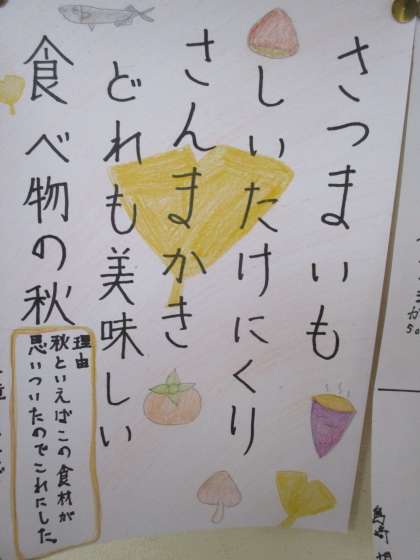 さつまいも
しいたけにくり
さんまかき
どれも美味しい
食べ物の秋
理由
秋といえばこの食材が
思いついたのでこれにした。